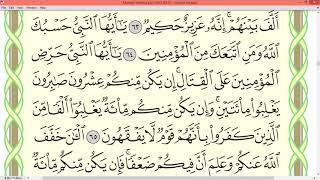 أَلَّفَ بَيْنَهُمْ ۚ إِنَّهُۥ عَزِيزٌ حَكِيمٌ ٦٣ يَـٰٓأَيُّهَا ٱلنَّبِىُّ حَسْبُكَ
ٱللَّهُ وَمَنِ ٱتَّبَعَكَ مِنَ ٱلْمُؤْمِنِينَ ٦٤ يَـٰٓأَيُّهَا ٱلنَّبِىُّ حَرِّضِ
ٱلْمُؤْمِنِينَ عَلَى ٱلْقِتَالِ ۚ إِن يَكُن مِّنكُمْ عِشْرُونَ صَـٰبِرُونَ
يَغْلِبُوا۟ مِا۟ئَتَيْنِ ۚ وَإِن يَكُن مِّنكُم مِّا۟ئَةٌ يَغْلِبُوٓا۟ أَلْفًا مِّنَ
ٱلَّذِينَ كَفَرُوا۟ بِأَنَّهُمْ قَوْمٌ لَّا يَفْقَهُونَ ٦٥ ٱلْـَٔـٰنَ خَفَّفَ
ٱللَّهُ عَنكُمْ وَعَلِمَ أَنَّ فِيكُمْ ضَعْفًا ۚ فَإِن يَكُن مِّنكُم مِّا۟ئَةٌ